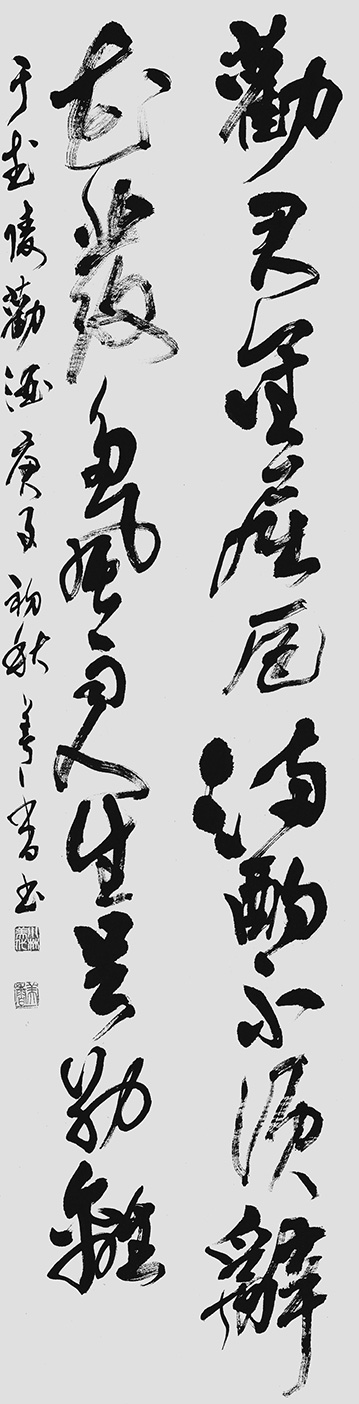 勸君金屈卮滿酌不須辭
花發多風雨人生足別離
于武陵勸酒庚子初秋書